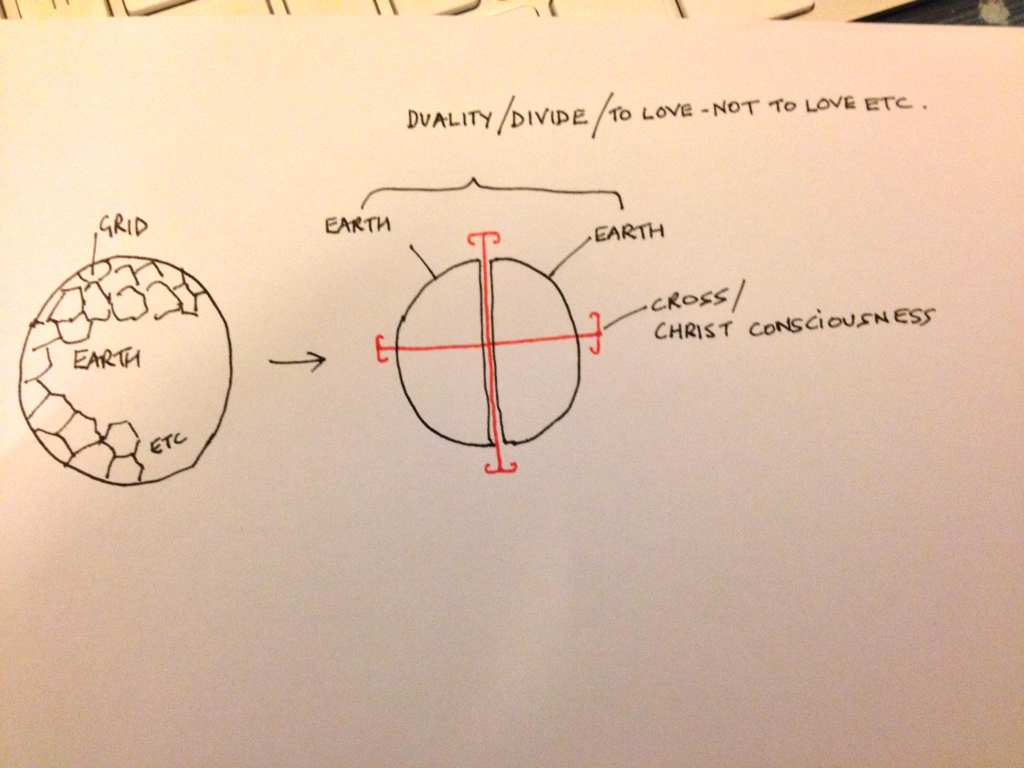 DUALITY/DIVIDE/TO LOVE-NOT TO LOVE ETC.
GRID
EARTH
ETC
EARTH
EARTH
CROSS/
CHRIST CONSCIOUSNESS